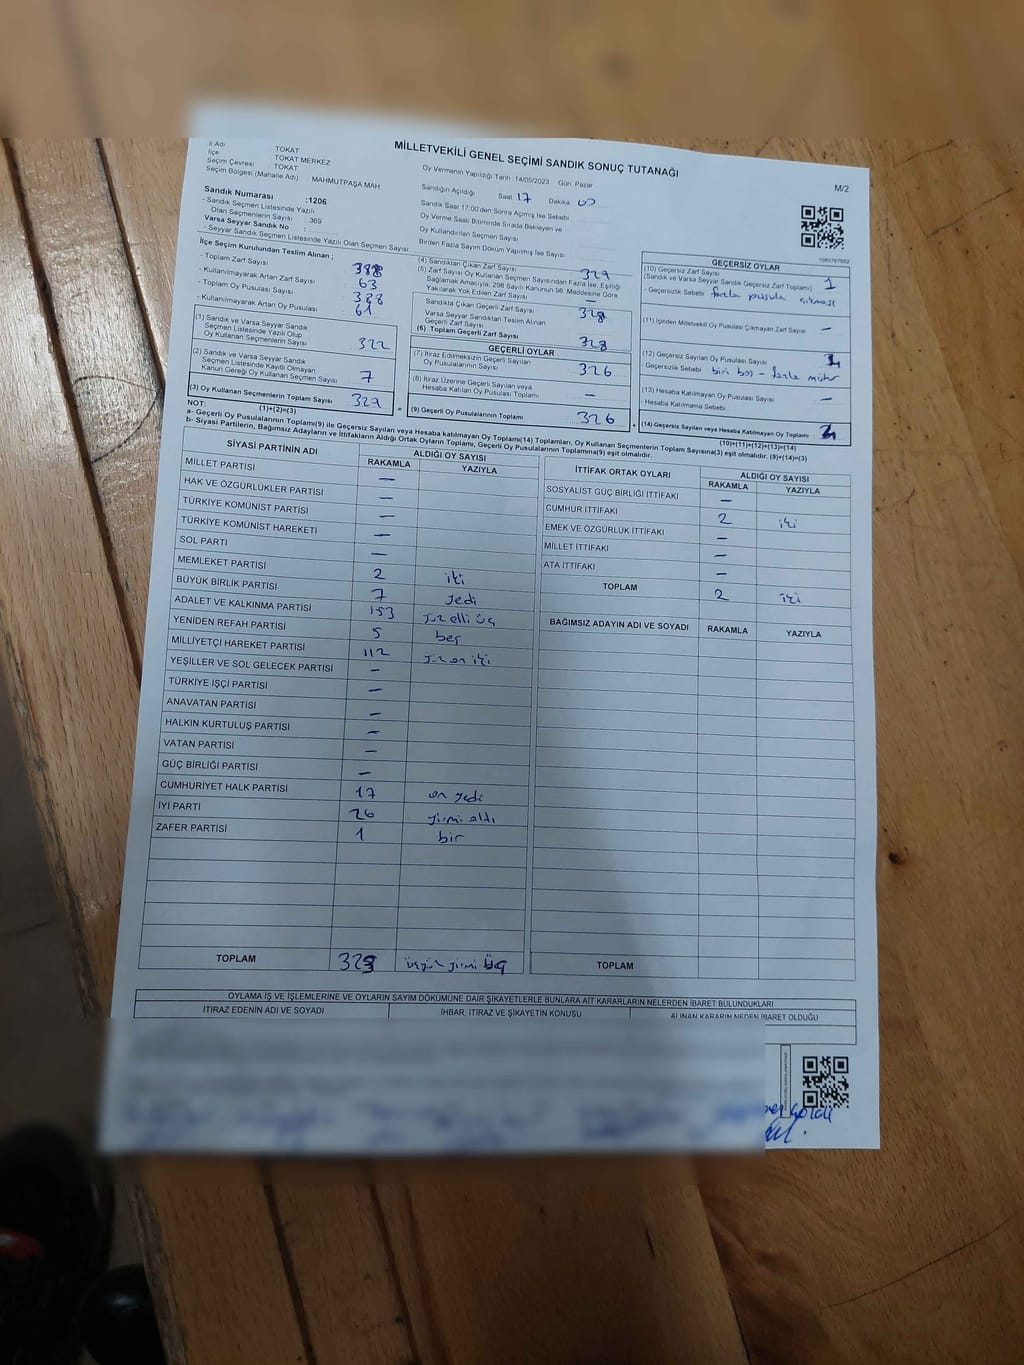 MİLLETVEKİLİ GENEL SEÇİMİ SANDIK SONUÇ TUTANAĞI
M/2
İl Adı TOKAT
İlçe TOKAT MERKEZ
Seçim Çevresi TOKAT
Seçim Bölgesi (Mahalle Adı) MAHMUTPAŞA MAH.
Oy Vermenin Yapıldığı Tarih : 14/05/2023 Gün: Pazar
Sandığın Açıldığı Saat 17 Dakika 00
Sandık Saat 17:00'den Sonra Açılmış İse Sebebi
Oy Verme Saati Bitiminde Sırada Bekleyen ve
Oy Kullandırılan Seçmen Sayısı
Birden Fazla Sayım Döküm Yapılmış İse Sayısı
Sandık Numarası :1206
- Sandık Seçmen Listesinde Yazılı
Olan Seçmenlerin Sayısı : 369
Varsa Seyyar Sandık No :
- Seyyar Sandık Seçmen Listesinde Yazılı Olan Seçmen Sayısı
İlçe Seçim Kurulundan Teslim Alınan ;
- Toplam Zarf Sayısı 388
- Kullanılmayarak Artan Zarf Sayısı 63
- Toplam Oy Pusulası Sayısı 388
- Kullanılmayarak Artan Oy Pusulası 61
(1) Sandık ve Varsa Seyyar Sandık
Seçmen Listesinde Yazılı Olup
Oy Kullanan Seçmenlerin Sayısı 322
(2) Sandık ve Varsa Seyyar Sandık
Seçmen Listesinde Kayıtlı Olmayan
Kanun Gereği Oy Kullanan Seçmen Sayısı 7
(3) Oy Kullanan Seçmenlerin Toplam Sayısı 329
(1)+(2)=(3)
(4) Sandıktan Çıkan Zarf Sayısı 329
(5) Zarf Sayısı Oy Kullanan Seçmen Sayısından Fazla İse, Eşitliği
Sağlamak Amacıyla; 298 Sayılı Kanunun 98. Maddesine Göre
Yakılarak Yok Edilen Zarf Sayısı —
Sandıkta Çıkan Geçerli Zarf Sayısı 328
Varsa Seyyar Sandıktan Teslim Alınan
Geçerli Zarf Sayısı
(6) Toplam Geçerli Zarf Sayısı 328
GEÇERLİ OYLAR
(7) İtiraz Edilmeksizin Geçerli Sayılan
Oy Pusulalarının Sayısı 326
(8) İtiraz Üzerine Geçerli Sayılan veya
Hesaba Katılan Oy Pusulası Toplamı —
(9) Geçerli Oy Pusulalarının Toplamı 326
1083787602
GEÇERSİZ OYLAR
(10) Geçersiz Zarf Sayısı
(Sandık ve Varsa Seyyar Sandık Geçersiz Zarf Toplamı) 1
- Geçersizlik Sebebi fazla pusula çıkması
(11) İçinden Milletvekili Oy Pusulası Çıkmayan Zarf Sayısı —
(12) Geçersiz Sayılan Oy Pusulası Sayısı
- Geçersizlik Sebebi biri boş - fazla mühür
(13) Hesaba Katılmayan Oy Pusulası Sayısı —
- Hesaba Katılmama Sebebi
(14) Geçersiz Sayılan veya Hesaba Katılmayan Oy Toplamı
(10)+(11)+(12)+(13)=(14)
NOT:
a- Geçerli Oy Pusulalarının Toplam(9) ile Geçersiz Sayılan veya Hesaba katılmayan Oy Toplam(14) Toplamları, Oy Kullanan Seçmenlerin Toplam Sayısına(3) eşit olmalıdır. (9)+(14)=(3)
b- Siyasi Partilerin, Bağımsız Adayların ve İttifakların Aldığı Ortak Oyların Toplamı, Geçerli Oy Pusulalarının Toplamına(9) eşit olmalıdır.
SİYASİ PARTİNİN ADI ALDIĞI OY SAYISI
RAKAMLA YAZIYLA
MİLLET PARTİSİ —
HAK VE ÖZGÜRLÜKLER PARTİSİ —
TÜRKİYE KOMÜNİST PARTİSİ —
TÜRKİYE KOMÜNİST HAREKETİ —
SOL PARTİ —
MEMLEKET PARTİSİ 2 iki
BÜYÜK BİRLİK PARTİSİ 7 yedi
ADALET VE KALKINMA PARTİSİ 153 yüz elli üç
YENİDEN REFAH PARTİSİ 5 beş
MİLLİYETÇİ HAREKET PARTİSİ 112 yüz on iki
YEŞİLLER VE SOL GELECEK PARTİSİ —
TÜRKİYE İŞÇİ PARTİSİ —
ANAVATAN PARTİSİ —
HALKIN KURTULUŞ PARTİSİ —
VATAN PARTİSİ —
GÜÇ BİRLİĞİ PARTİSİ —
CUMHURİYET HALK PARTİSİ 17 on yedi
İYİ PARTİ 26 yirmi altı
ZAFER PARTİSİ 1 bir
TOPLAM 323 üçyüz yirmi üç
İTTİFAK ORTAK OYLARI ALDIĞI OY SAYISI
RAKAMLA YAZIYLA
SOSYALİST GÜÇ BİRLİĞİ İTTİFAKI —
CUMHUR İTTİFAKI 2 iki
EMEK VE ÖZGÜRLÜK İTTİFAKI —
MİLLET İTTİFAKI —
ATA İTTİFAKI —
TOPLAM 2 iki
BAĞIMSIZ ADAYIN ADI VE SOYADI RAKAMLA YAZIYLA
TOPLAM
OYLAMA İŞ VE İŞLEMLERİNE VE OYLARIN SAYIM DÖKÜMÜNE DAİR ŞİKAYETLERLE BUNLARA AİT KARARLARIN NELERDEN İBARET BULUNDUKLARI
İTİRAZ EDENİN ADI VE SOYADI İHBAR, İTİRAZ VE ŞİKAYETİN KONUSU ALINAN KARARIN NEDEN İBARET OLDUĞU